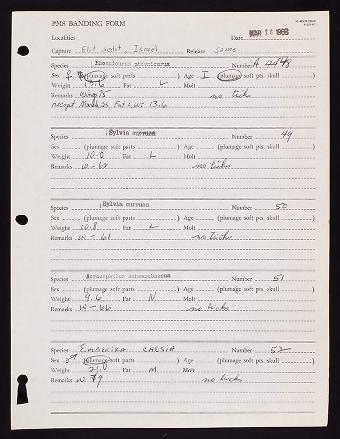 PMS BANDING FORM
Localities Date MAR 16 1968
Capture Elat Israel Release same
Species Phoenicurus phoenicurus Number A 4448
Sex ♀ (plumage soft parts ) Age I (plumage soft pts. skull )
Weight 13.6 Fat L Molt
Remarks Wing 75 no ticks
recapt March 23, Fat L, wt 13.6
Species Sylvia curruca Number 49
Sex (plumage soft parts ) Age (plumage soft pts. skull )
Weight 10.0 Fat L Molt
Remarks W-62 no ticks
Species Sylvia curruca Number 50
Sex (plumage soft parts ) Age (plumage soft pts. skull )
Weight 10.8 Fat L Molt
Remarks W-61 no ticks
Species Acrocephalus schoenobaenus Number 51
Sex (plumage soft parts ) Age (plumage soft pts. skull )
Weight 9.6 Fat N Molt
Remarks W-66 no ticks
Species EMBERIZA CAESIA Number 52
Sex ♂ (plumage soft parts ) Age (plumage soft pts. skull )
Weight 21.0 Fat M Molt
Remarks W 79 no ticks